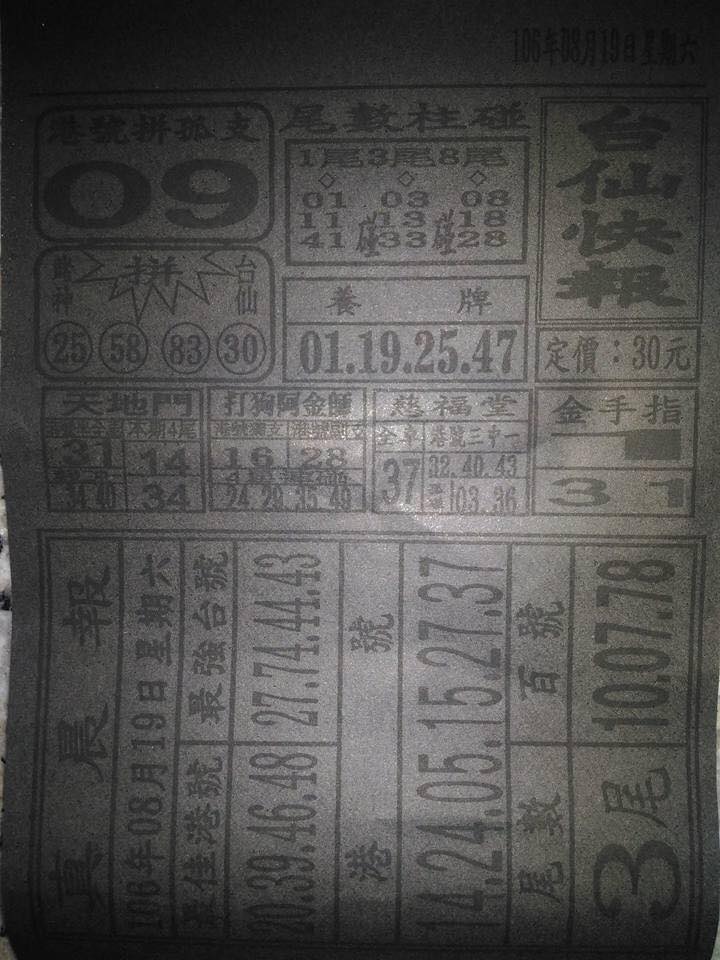 106年08月19日星期六
港號拼孤支
09
尾數柱碰
1尾3尾8尾
01 03 08
11碰13碰18
41 33 28
台仙快報
拼
台仙
25 58 83 30
養牌
01.19.25.47
定價：30元
天地門
本期4尾
31 14
34
打狗阿金師
16 28
24 29 35 49
慈福堂
全車 港號三中一
37 32.40.43
03.36
金手指
3 1
真晨報
106年08月19日星期六
最佳港號 最強台號
20.39.46.48 27.74.44.43
港號
14.24.05.15.27.37
尾數 百號
3尾 10.07.78